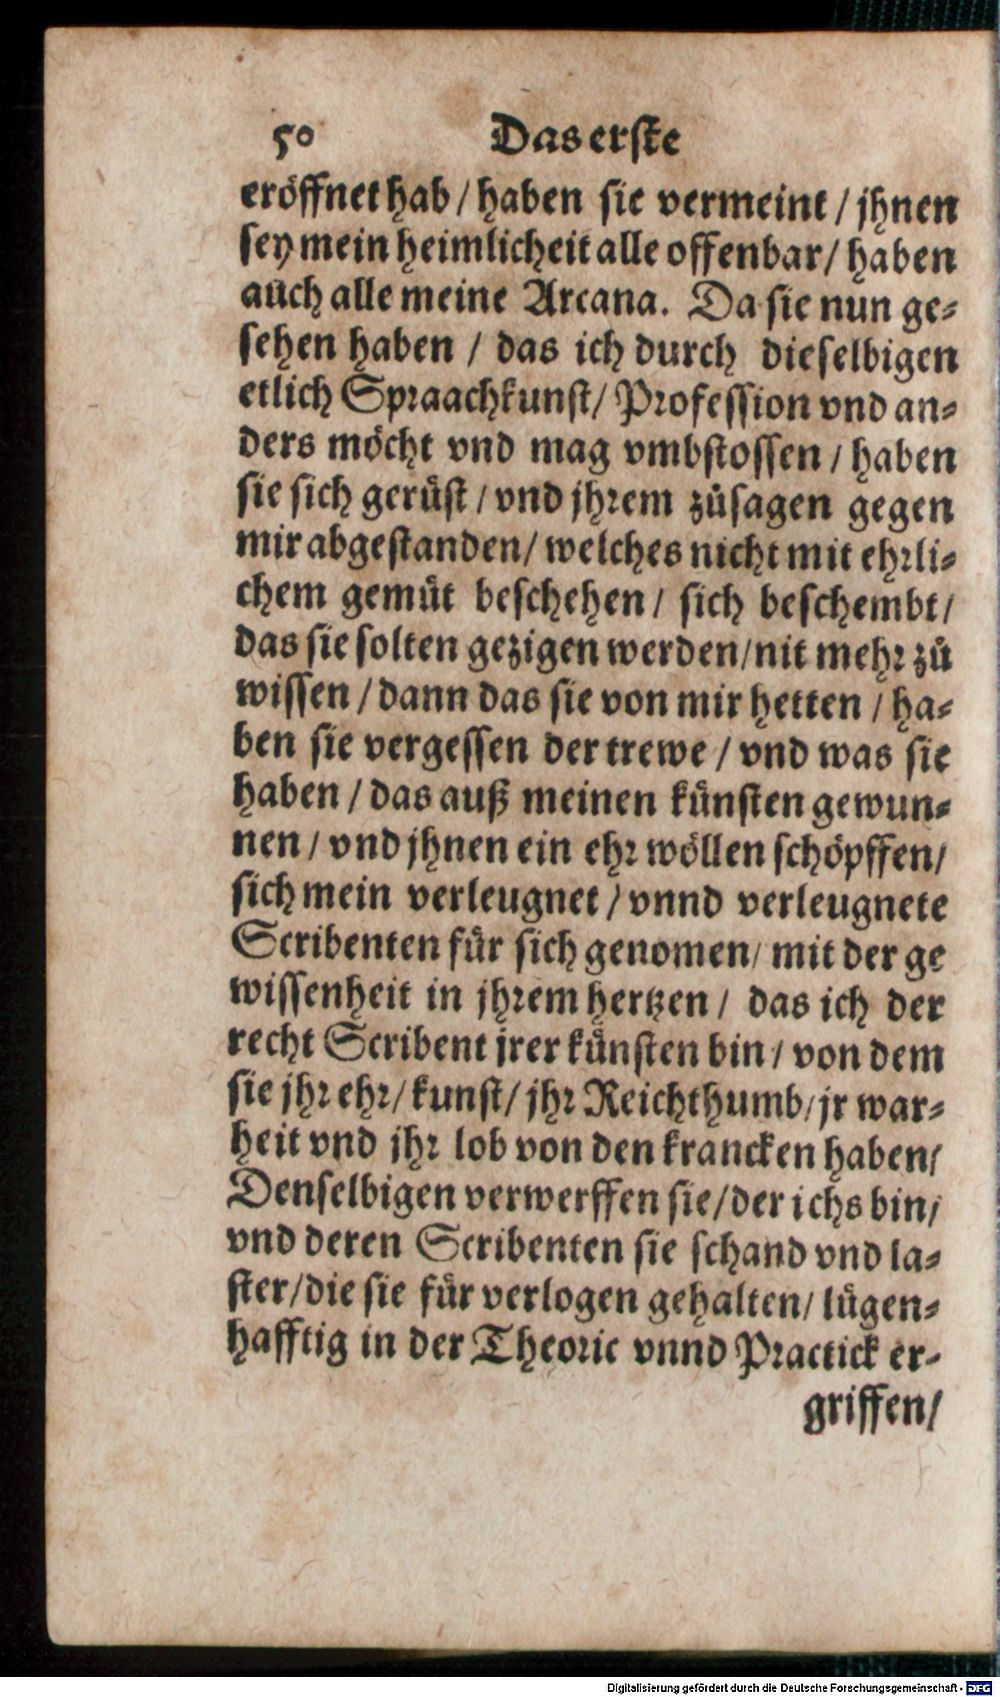 50 Das erste
eröffnet hab / haben sie vermeint / jhnen
sey mein heimlicheit alle offenbar / haben
auch alle meine Arcana. Da sie nun ge-
sehen haben / das ich durch dieselbigen
etlich Spraachkunst / Profession vnd an-
ders möcht vnd mag vmbstossen / haben
sie sich gerüst / vnd jhrem zůsagen gegen
mir abgestanden / welches nicht mit ehrli-
chem gemüt beschehen / sich beschembt /
das sie solten gezigen werden / nit mehr zů
wissen / dann das sie von mir hetten / ha-
ben sie vergessen der trewe / vnd was sie
haben / das auß meinen künsten gewun-
nen / vnd jhnen ein ehr wöllen schöpffen /
sich mein verleugnet / vnnd verleugnete
Scribenten für sich genomen / mit der ge
wissenheit in jhrem hertzen / das ich der
recht Scribent jrer künsten bin / von dem
sie jhr ehr / kunst / jhr Reichthumb / jr war-
heit vnd jhr lob von den krancken haben /
Denselbigen verwerffen sie / der ichs bin /
vnd deren Scribenten sie schand vnd la-
ster / die sie für verlogen gehalten / lügen-
hafftig in der Theoric vnnd Practick er-
griffen /
Digitalisierung gefördert durch die Deutsche Forschungsgemeinschaft - DFG